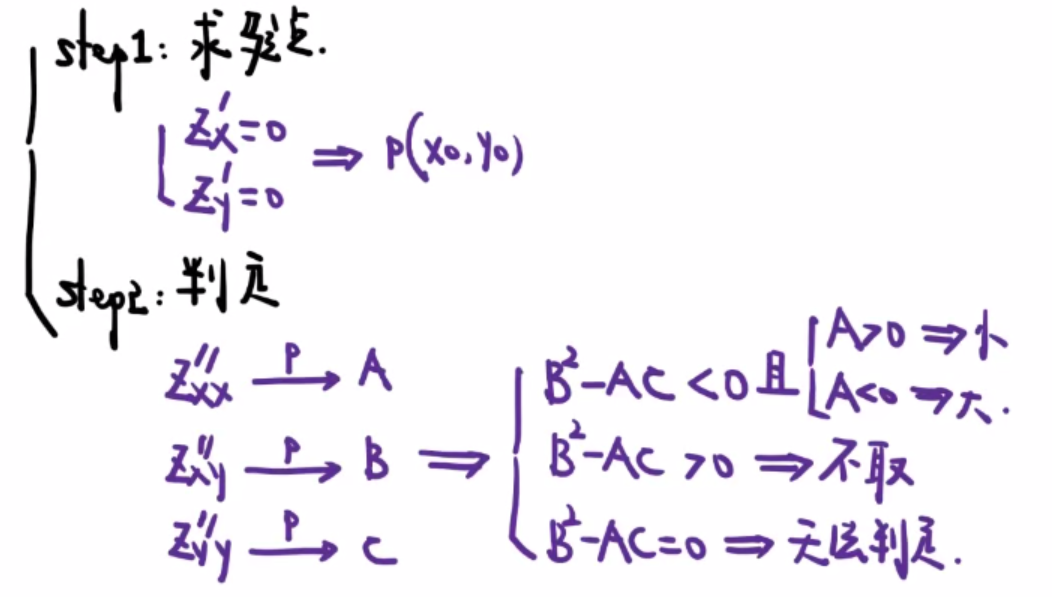 step1: 求驻点.
Z'x=0
⇒ P(x0,y0)
Z'y=0
step2: 判定
Z''xx —P→ A
Z''xy —P→ B ⇒
Z''yy —P→ C
B²-AC<0且
A>0 ⇒ 小
A<0 ⇒ 大.
B²-AC>0 ⇒ 不取
B²-AC=0 ⇒ 无法判定.